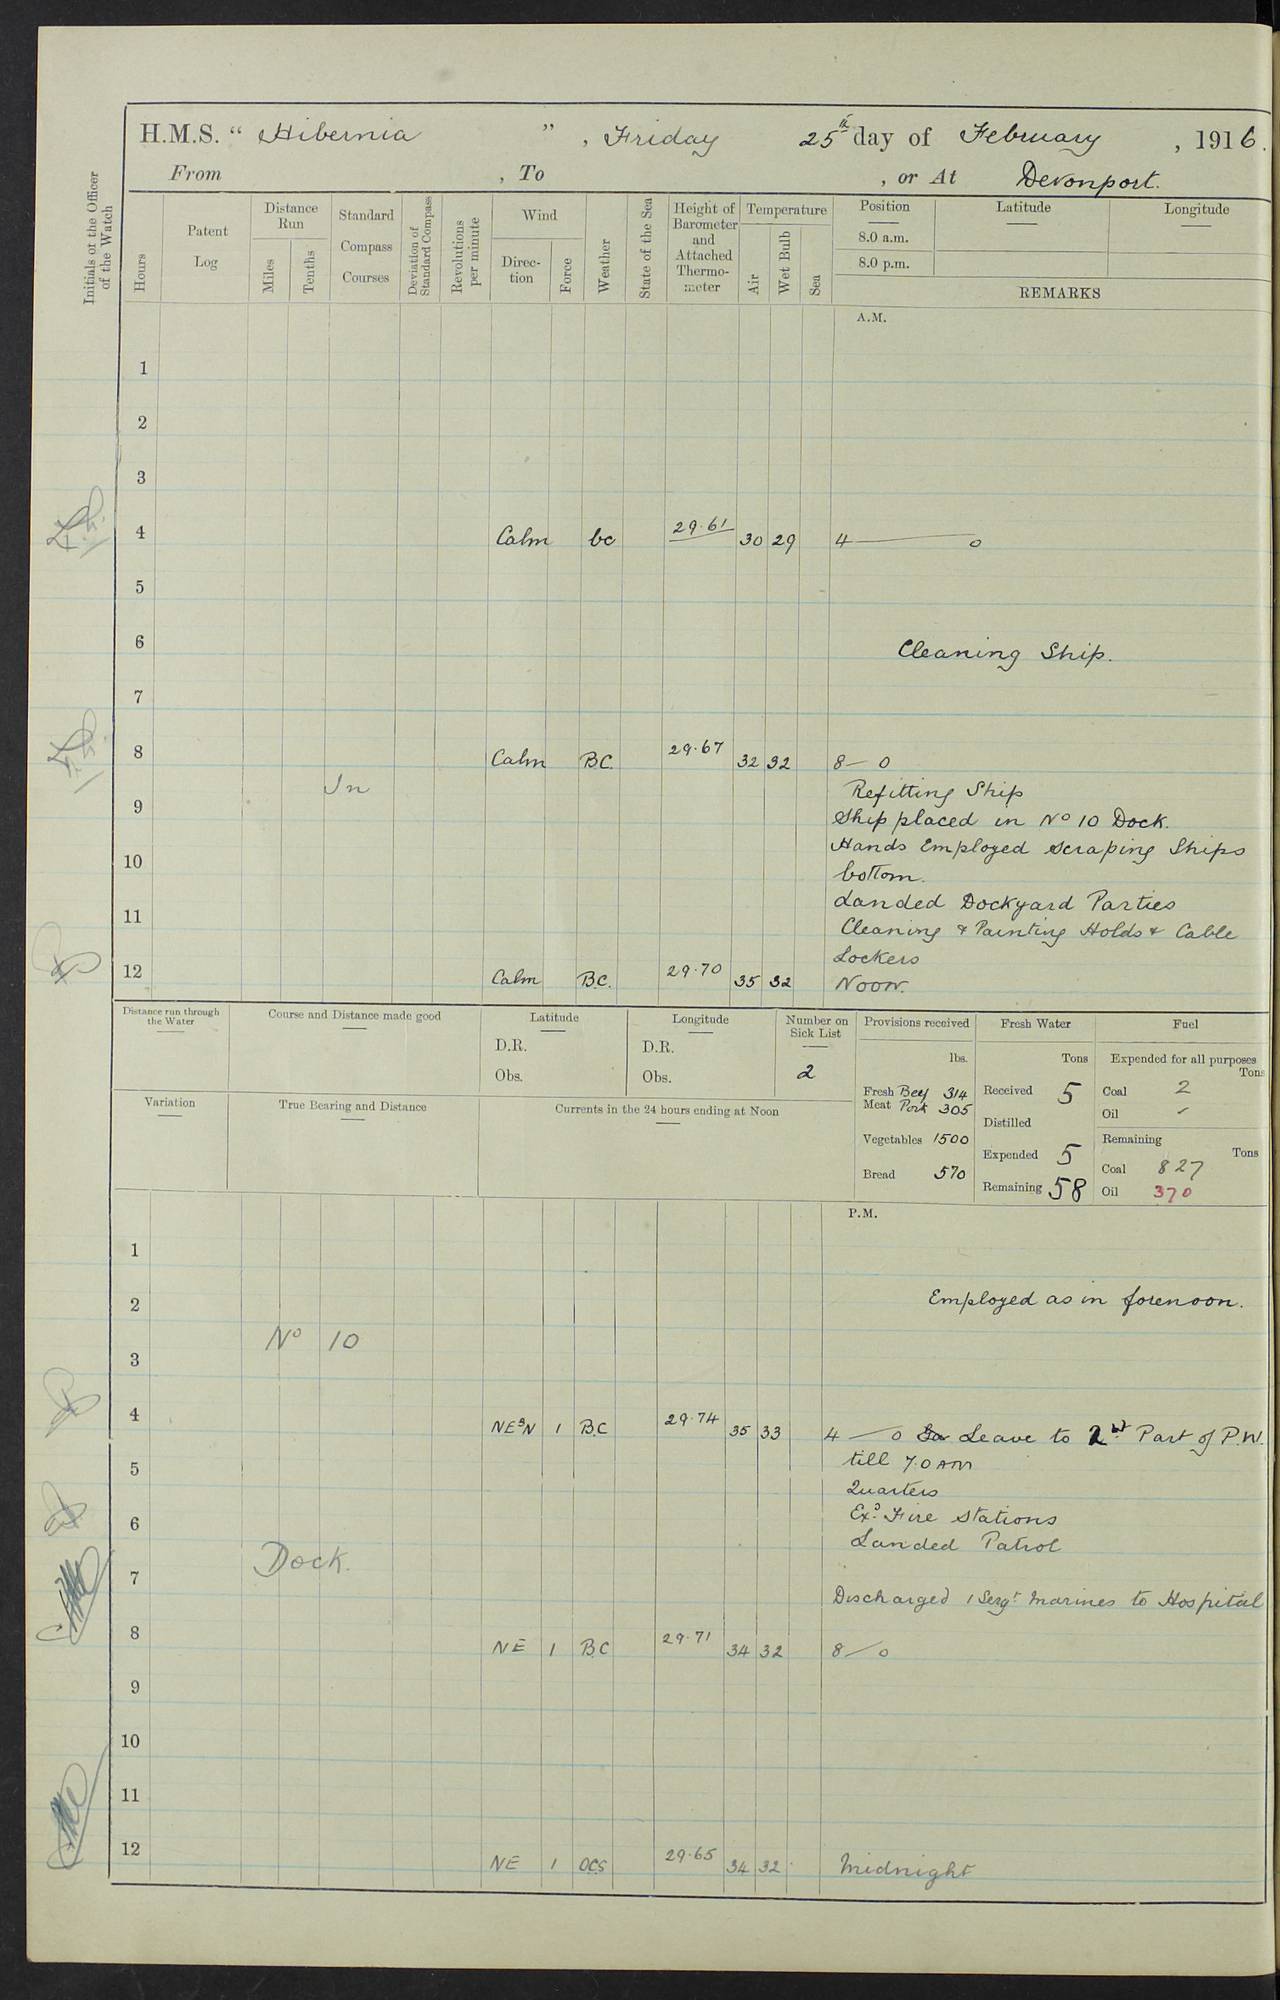 H.M.S. " Hibernia " , Friday 25th day of February , 1916.
From , To , or At Devonport.
Initials of the Officer of the Watch
Hours
Patent Log
Distance Run
Miles
Tenths
Standard Compass Courses
Deviation of Standard Compass
Revolutions per minute
Wind
Direction
Force
Weather
State of the Sea
Height of Barometer and Attached Thermometer
Temperature
Air
Wet Bulb
Sea
Position Latitude Longitude
8.0 a.m.
8.0 p.m.
REMARKS
A.M.
1
2
3
4 Calm bc 29.61 30 29 4 — 0
5
6 Cleaning Ship.
7
8 Calm B.C. 29.67 32 32 8 — 0
In Refitting Ship
9 Ship placed in No 10 Dock.
10 Hands Employed scraping Ships
bottom.
11 Landed Dockyard Parties
Cleaning & Painting Holds & Cable
Lockers
12 Calm B.C. 29.70 35 32 Noon.
Distance run through the Water
Course and Distance made good
Latitude
D.R.
Obs.
Longitude
D.R.
Obs.
Number on Sick List
2
Provisions received
lbs.
Fresh Meat Beef 314
Pork 305
Vegetables 1500
Bread 570
Fresh Water
Tons
Received 5
Distilled
Expended 5
Remaining 58
Fuel
Expended for all purposes
Tons
Coal 2
Oil ✓
Remaining
Tons
Coal 827
Oil 370
Variation
True Bearing and Distance
Currents in the 24 hours ending at Noon
P.M.
1
2 Employed as in forenoon.
No 10
3
4 NEBN 1 B.C 29.74 35 33 4 — 0 Leave to 2nd Part of P.W.
till 7.0 AM
5 Quarters
6 Exd Fire Stations
Landed Patrol
Dock.
7 Discharged 1 Sergt Marines to Hospital
8 NE 1 B.C 29.71 34 32 8 — 0
9
10
11
12 NE 1 OCS 29.65 34 32 Midnight